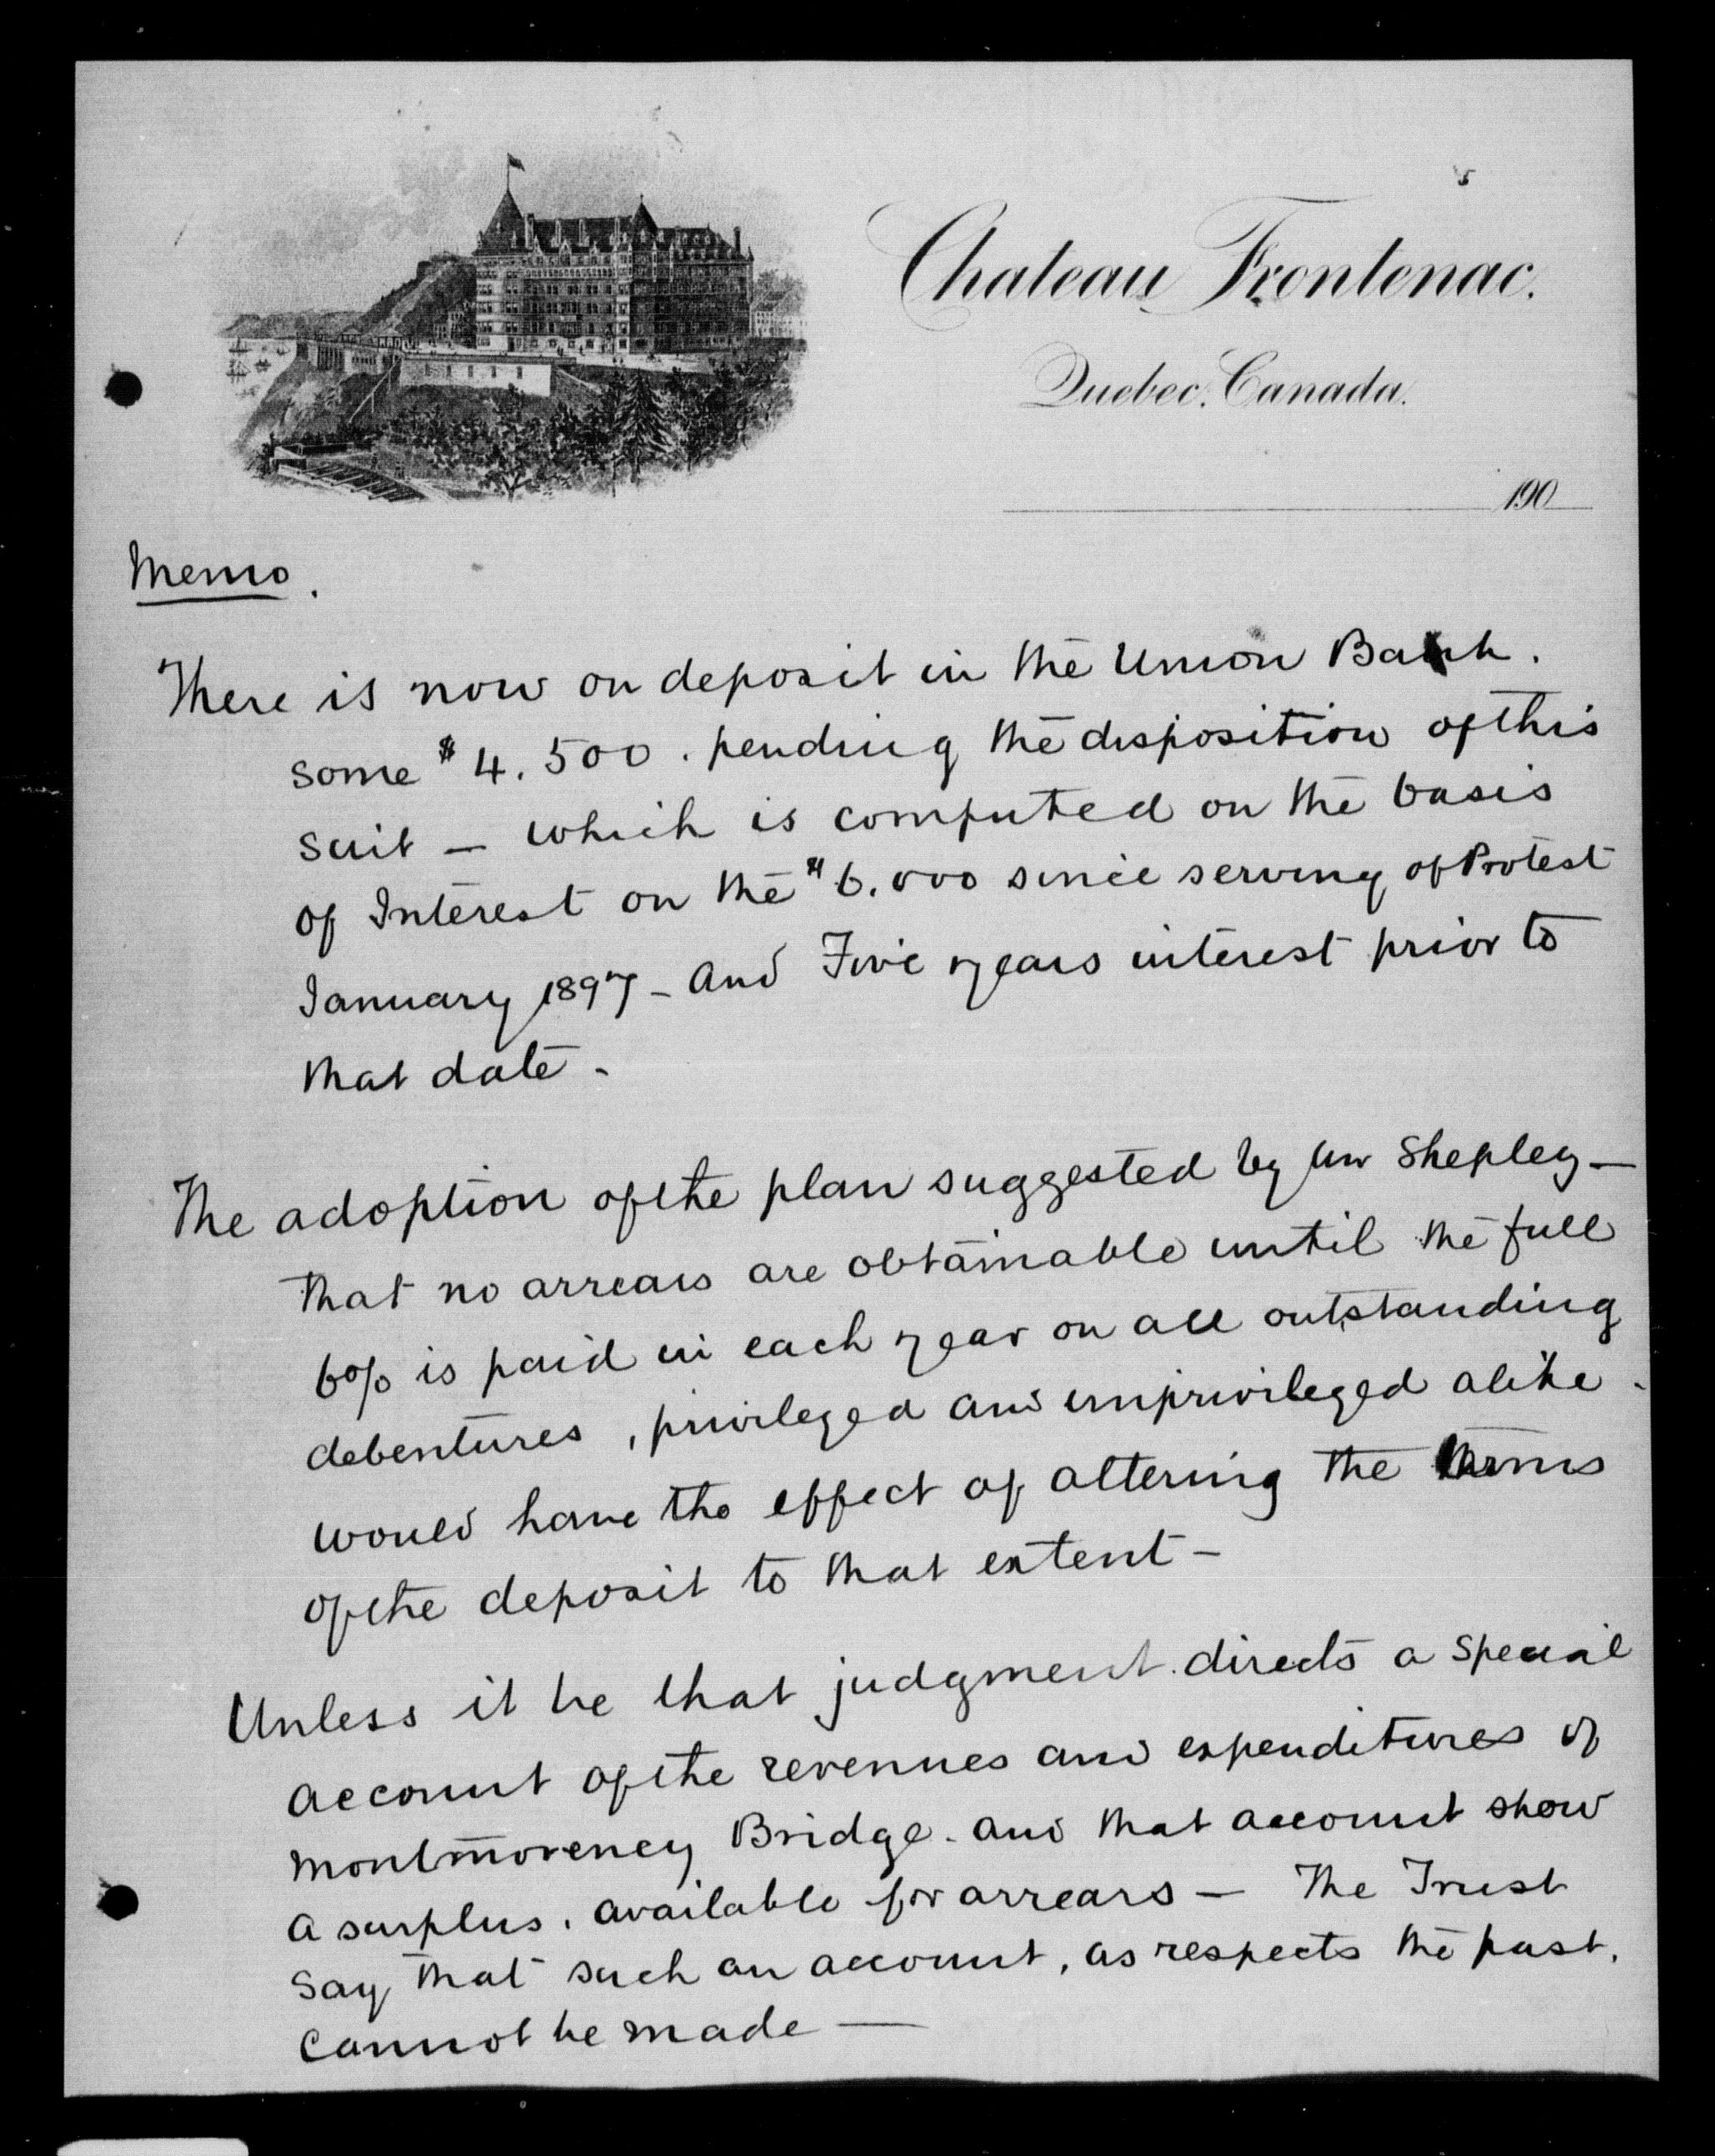 Chateau Frontenac.
Quebec, Canada.
190
Memo.
There is now on deposit in the Union Bank.
some $4.500. pending the disposition of this
suit – which is computed on the basis
of Interest on the $6.000 since serving of Protest
January 1897 – and Five years interest prior to
that date –
The adoption of the plan suggested by Mr Shepley –
that no arrears are obtainable until the full
6% is paid in each year on all outstanding
debentures, privileged and unprivileged alike –
would have the effect of altering the terms
of the deposit to that extent –
Unless it be that judgment directs a special
account of the revenues and expenditures of
Montmorency Bridge. and that account show
a surplus. available for arrears – The Trust
say that such an account, as respects the past,
cannot be made –